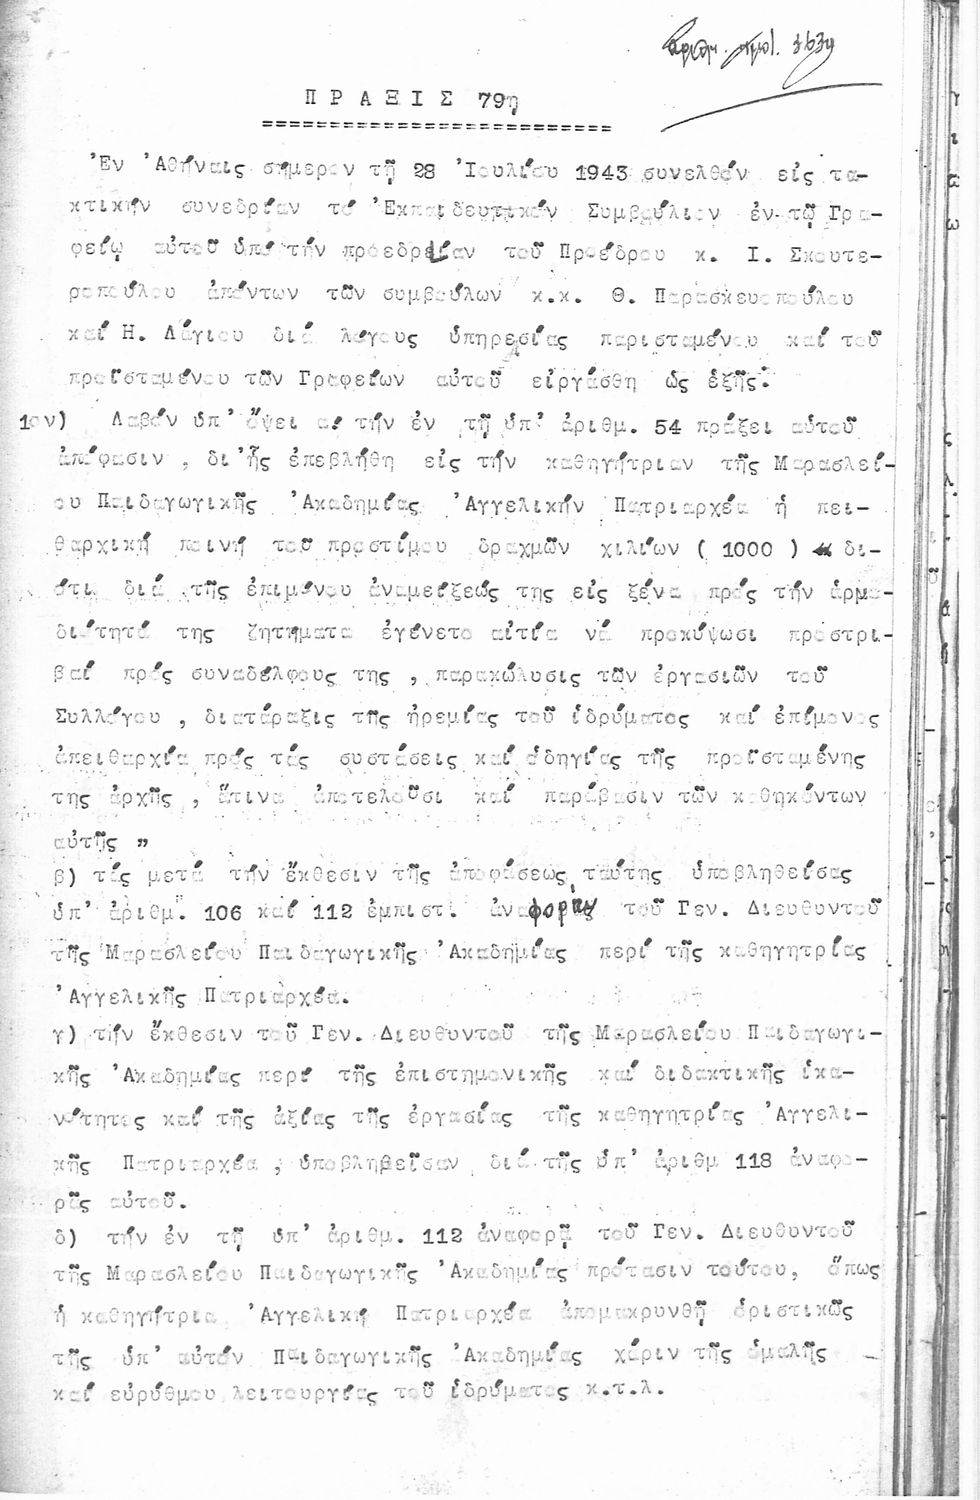 αριθμ. πρωτ. 3639
ΠΡΑΞΙΣ 79η
==========================
Ἐν Ἀθήναις σήμερον τῇ 28 Ἰουλίου 1943 συνελθόν εἰς τα-
κτικήν συνεδρίαν τό Ἐκπαιδευτικόν Συμβούλιον ἐν τῷ Γρα-
φείῳ αὐτοῦ ὑπό τήν προεδρείαν τοῦ Προέδρου κ. Ι. Σκουτε-
ροπούλου ἁπάντων τῶν συμβούλων κ.κ. Θ. Παρασκευοπούλου
καί Η. Λάγιου διά λόγους ὑπηρεσίας παρισταμένου καί τοῦ
προϊσταμένου τῶν Γραφείων αὐτοῦ εἰργάσθη ὡς ἑξῆς:
1ον) Λαβόν ὑπ' ὄψει α) τήν ἐν τῇ ὑπ' ἀριθμ. 54 πράξει αὐτοῦ
ἀπόφασιν , δι'ἧς ἐπεβλήθη εἰς τήν καθηγήτριαν τῆς Μαρασλεί-
ου Παιδαγωγικῆς Ἀκαδημίας Ἀγγελικήν Πατριαρχέα ἡ πει-
θαρχική ποινή τοῦ προστίμου δραχμῶν χιλίων ( 1000 ) « δι-
ότι διά τῆς ἐπιμόνου ἀναμείξεώς της εἰς ξένα πρός τήν ἁρμο-
διότητά της ζητήματα ἐγένετο αἰτία νά προκύψωσι προστρι-
βαί πρός συναδέλφους της , παρακώλυσις τῶν ἐργασιῶν τοῦ
Συλλόγου , διατάραξις της ἠρεμίας τοῦ ἱδρύματος καί ἐπίμονος
ἀπειθαρχία πρός τάς συστάσεις καί ὁδηγίας τῆς προϊσταμένης
της ἀρχῆς , ἅτινα ἀποτελοῦσι καί παράβασιν τῶν καθηκόντων
αὐτῆς "
β) τάς μετά τήν ἔκθεσιν τῆς ἀποφάσεως ταύτης ὑποβληθείσας
ὑπ' ἀριθμ. 106 καί 112 ἐμπιστ. ἀναφοράς τοῦ Γεν. Διευθυντοῦ
τῆς Μαρασλείου Παιδαγωγικῆς Ἀκαδημίας περί τῆς καθηγητρίας
Ἀγγελικῆς Πατριαρχέα.
γ) τήν ἔκθεσιν τοῦ Γεν. Διευθυντοῦ τῆς Μαρασλείου Παιδαγωγι-
κῆς Ἀκαδημίας περί τῆς ἐπιστημονικῆς καί διδακτικῆς ἱκα-
νότητος καί τῆς ἀξίας τῆς ἐργασίας τῆς καθηγητρίας Ἀγγελι-
κῆς Πατριαρχέα , ὑποβληθεῖσαν διά τῆς ὑπ' ἀριθμ 118 ἀναφο-
ρᾶς αὐτοῦ.
δ) τήν ἐν τῇ ὑπ' ἀριθμ. 112 ἀναφορᾷ τοῦ Γεν. Διευθυντοῦ
τῆς Μαρασλείου Παιδαγωγικῆς Ἀκαδημίας πρότασιν τούτου, ὅπως
ἡ καθηγήτρια Ἀγγελική Πατριαρχέα ἀπομακρυνθῇ ὁριστικῶς
τῆς ὑπ' αὐτόν Παιδαγωγικῆς Ἀκαδημίας χάριν τῆς ὁμαλῆς
καί εὐρύθμου λειτουργίας τοῦ ἱδρύματος κ.τ.λ.